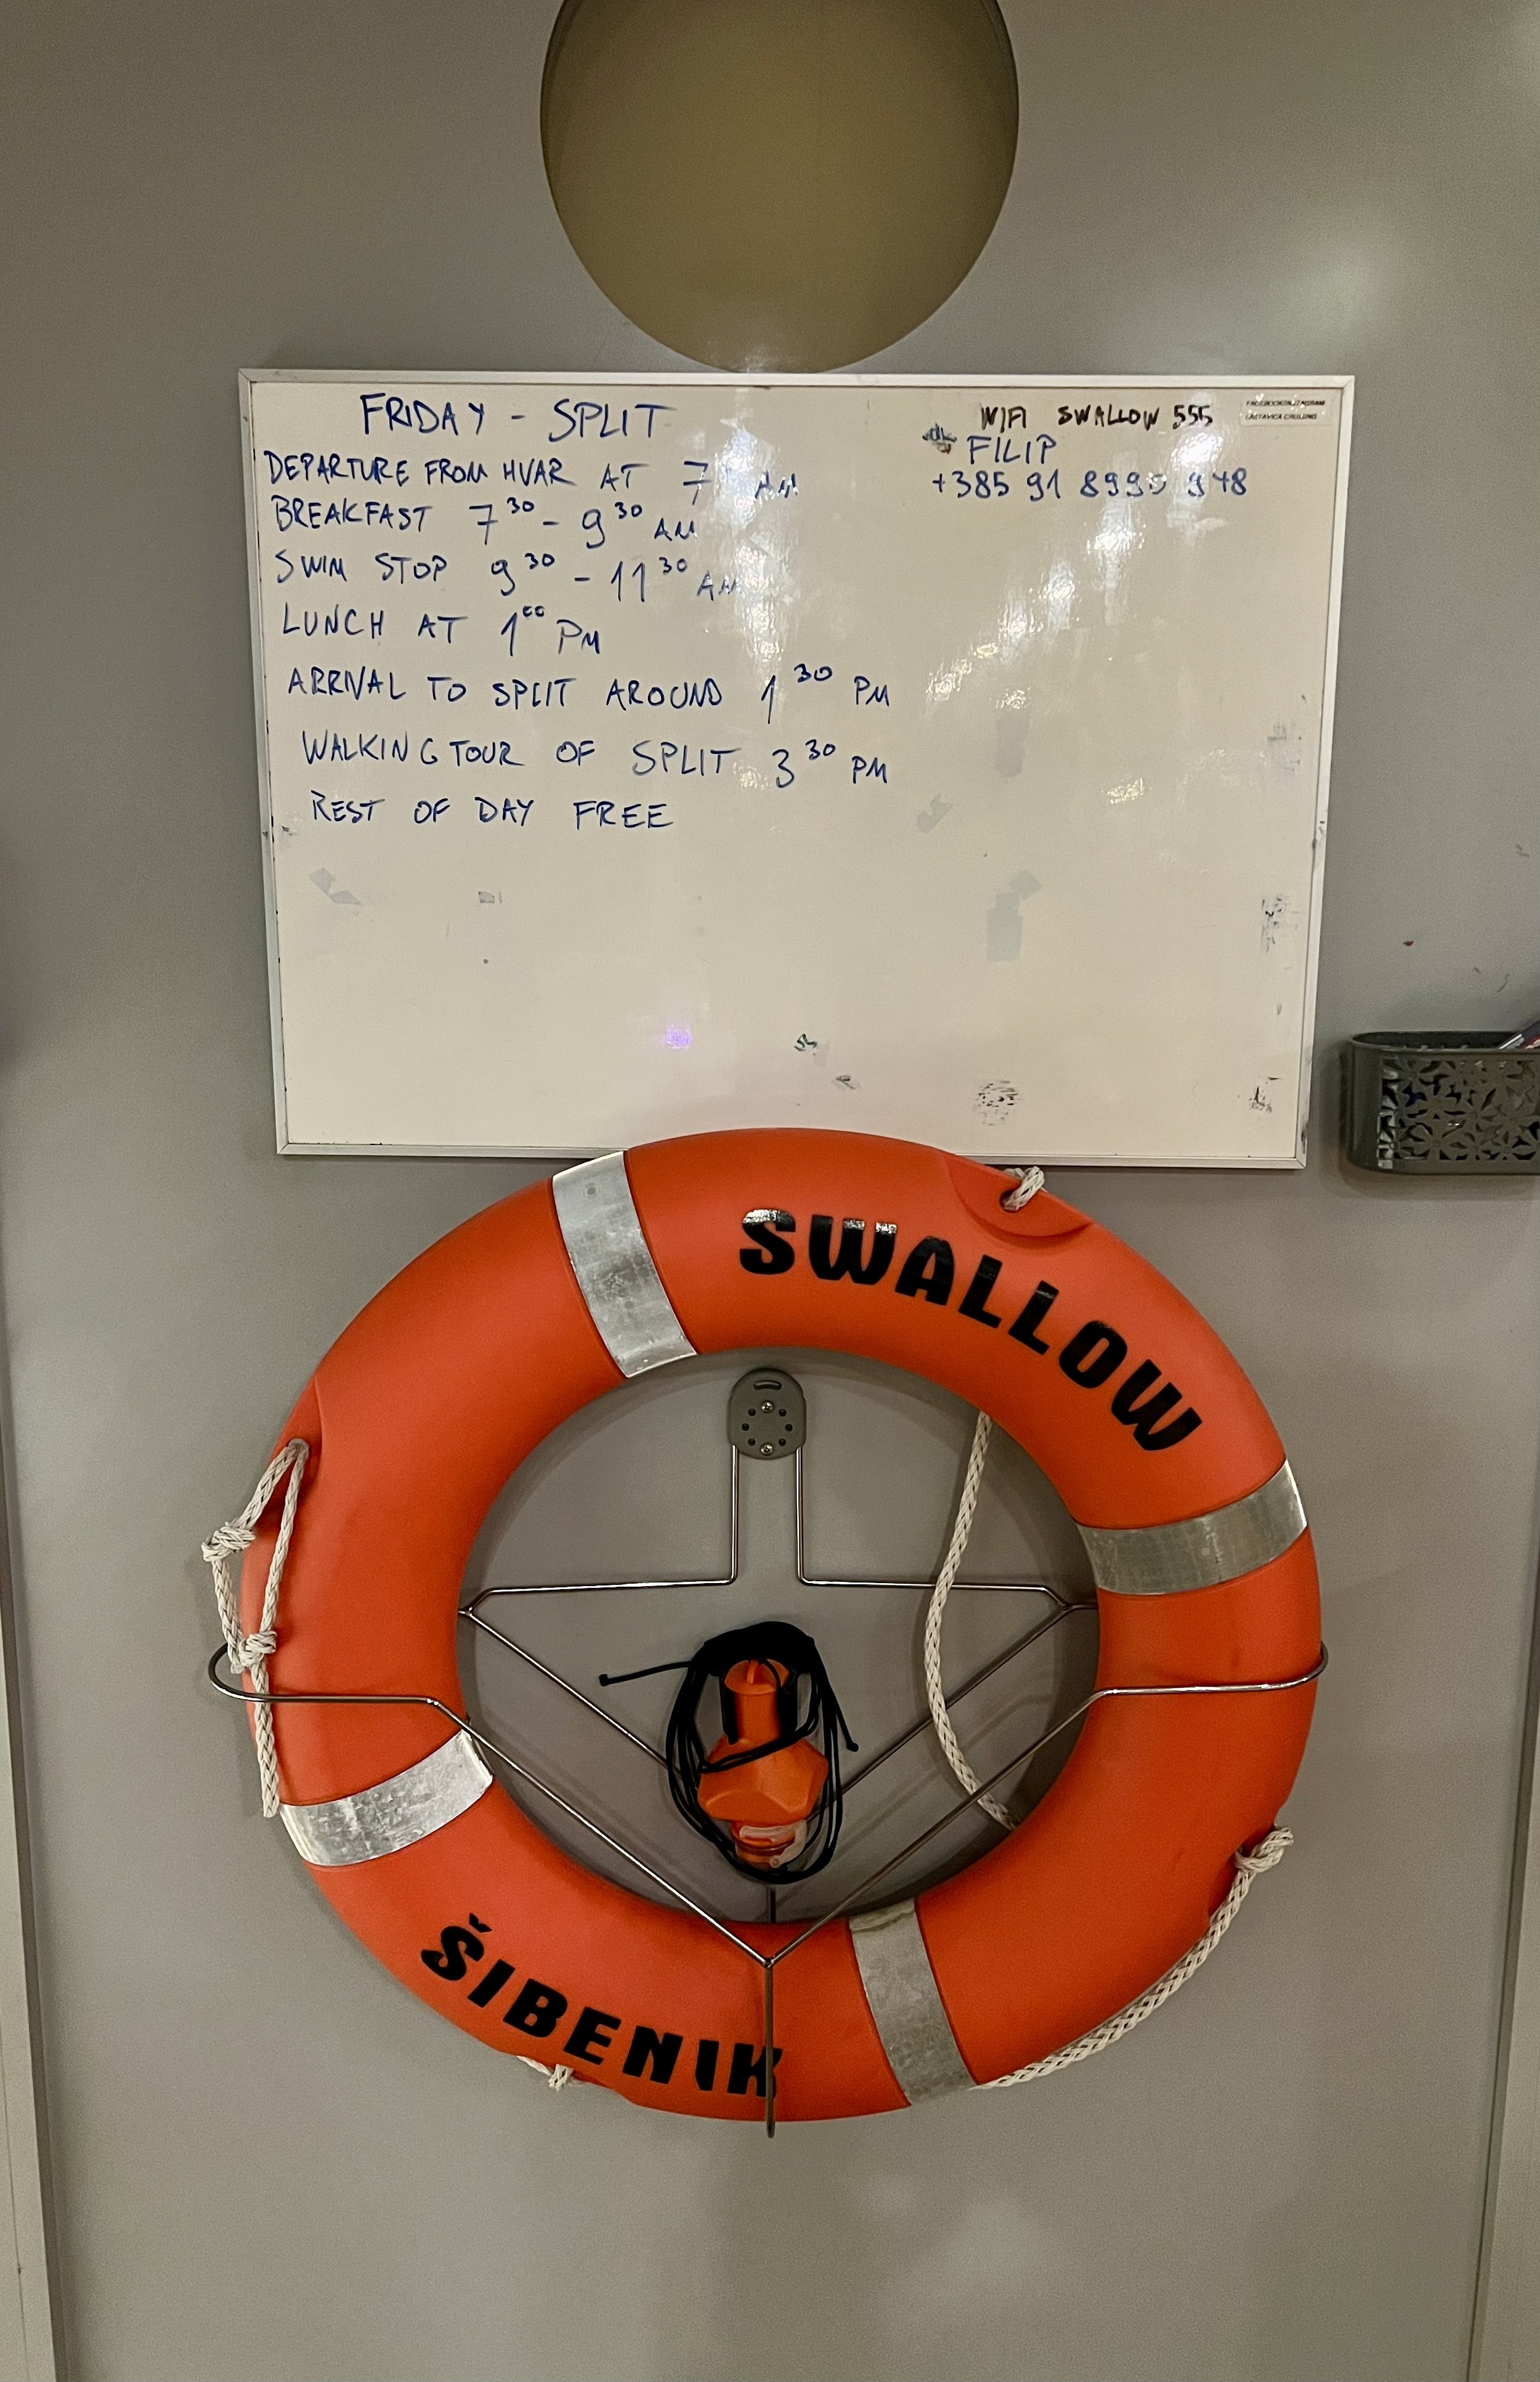 FRIDAY - SPLIT
DEPARTURE FROM HVAR AT 7 AM
BREAKFAST 7³⁰ - 9³⁰ AM
SWIM STOP 9³⁰ - 11³⁰ AM
LUNCH AT 1⁰⁰ PM
ARRIVAL TO SPLIT AROUND 1³⁰ PM
WALKING TOUR OF SPLIT 3³⁰ PM
REST OF DAY FREE
WIFI SWALLOW 555
FILIP
+385 91
LASTAVICA CRUISING
SWALLOW
ŠIBENIK